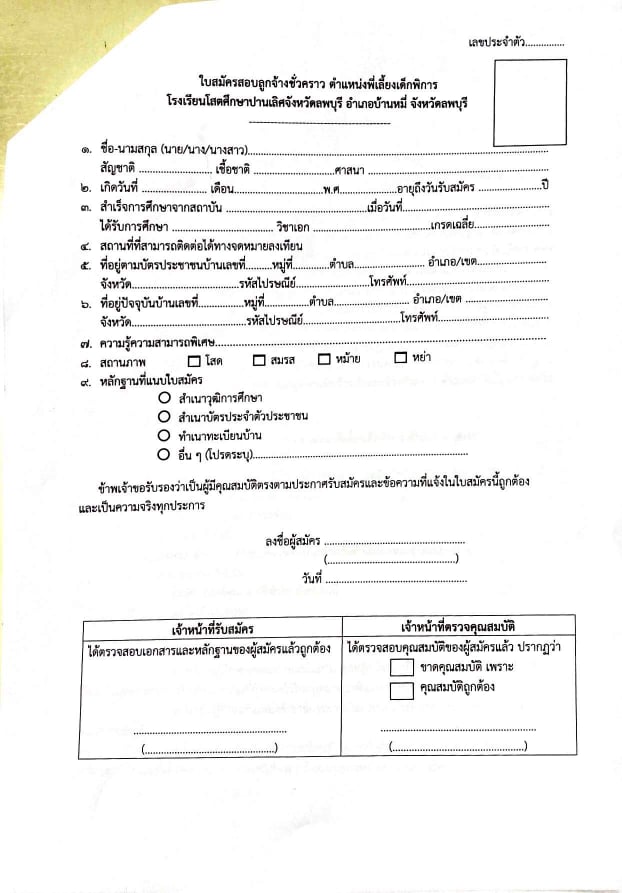 เลขประจำตัว..............
ใบสมัครสอบลูกจ้างชั่วคราว ตำแหน่งพี่เลี้ยงเด็กพิการ
โรงเรียนโสตศึกษาปานเลิศจังหวัดลพบุรี อำเภอบ้านหมี่ จังหวัดลพบุรี
๑. ชื่อ-นามสกุล (นาย/นาง/นางสาว)..............................
สัญชาติ .............. เชื้อชาติ .............. ศาสนา ..............
๒. เกิดวันที่ .............. เดือน..............พ.ศ..............อายุถึงวันรับสมัคร ..............ปี
๓. สำเร็จการศึกษาจากสถาบัน ..............เมื่อวันที่..............
ได้รับการศึกษา .............. วิชาเอก ..............เกรดเฉลี่ย..............
๔. สถานที่ที่สามารถติดต่อได้ทางจดหมายลงเทียน
๕. ที่อยู่ตามบัตรประชาชนบ้านเลขที่........หมู่ที่............ตำบล.............. อำเภอ/เขต..............
จังหวัด..............รหัสไปรษณีย์..............โทรศัพท์..............
๖. ที่อยู่ปัจจุบันบ้านเลขที่..............หมู่ที่..............ตำบล.............. อำเภอ/เขต ..............
จังหวัด..............รหัสไปรษณีย์..............โทรศัพท์..............
๗. ความรู้ความสามารถพิเศษ..............................
๘. สถานภาพ โสด สมรส หม้าย หย่า
๙. หลักฐานที่แนบใบสมัคร
สำเนาวุฒิการศึกษา
สำเนาบัตรประจำตัวประชาชน
ทำเนาทะเบียนบ้าน
อื่น ๆ (โปรดระบุ)..............................
ข้าพเจ้าขอรับรองว่าเป็นผู้มีคุณสมบัติตรงตามประกาศรับสมัครและข้อความที่แจ้งในใบสมัครนี้ถูกต้อง
และเป็นความจริงทุกประการ
ลงชื่อผู้สมัคร ..............................
(..............................)
วันที่ ..............................
เจ้าหน้าที่รับสมัคร
ได้ตรวจสอบเอกสารและหลักฐานของผู้สมัครแล้วถูกต้อง
..............................
(..............................)
เจ้าหน้าที่ตรวจคุณสมบัติ
ได้ตรวจสอบคุณสมบัติของผู้สมัครแล้ว ปรากฏว่า
ขาดคุณสมบัติ เพราะ
คุณสมบัติถูกต้อง
..............................
(..............................)